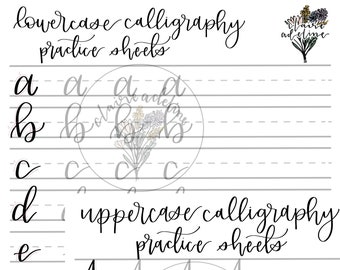 lowercase calligraphy
practice sheets
claire
adeline
a a a a
b b b b
claire adeline
c c c c
d
e
uppercase calligraphy
practice sheets